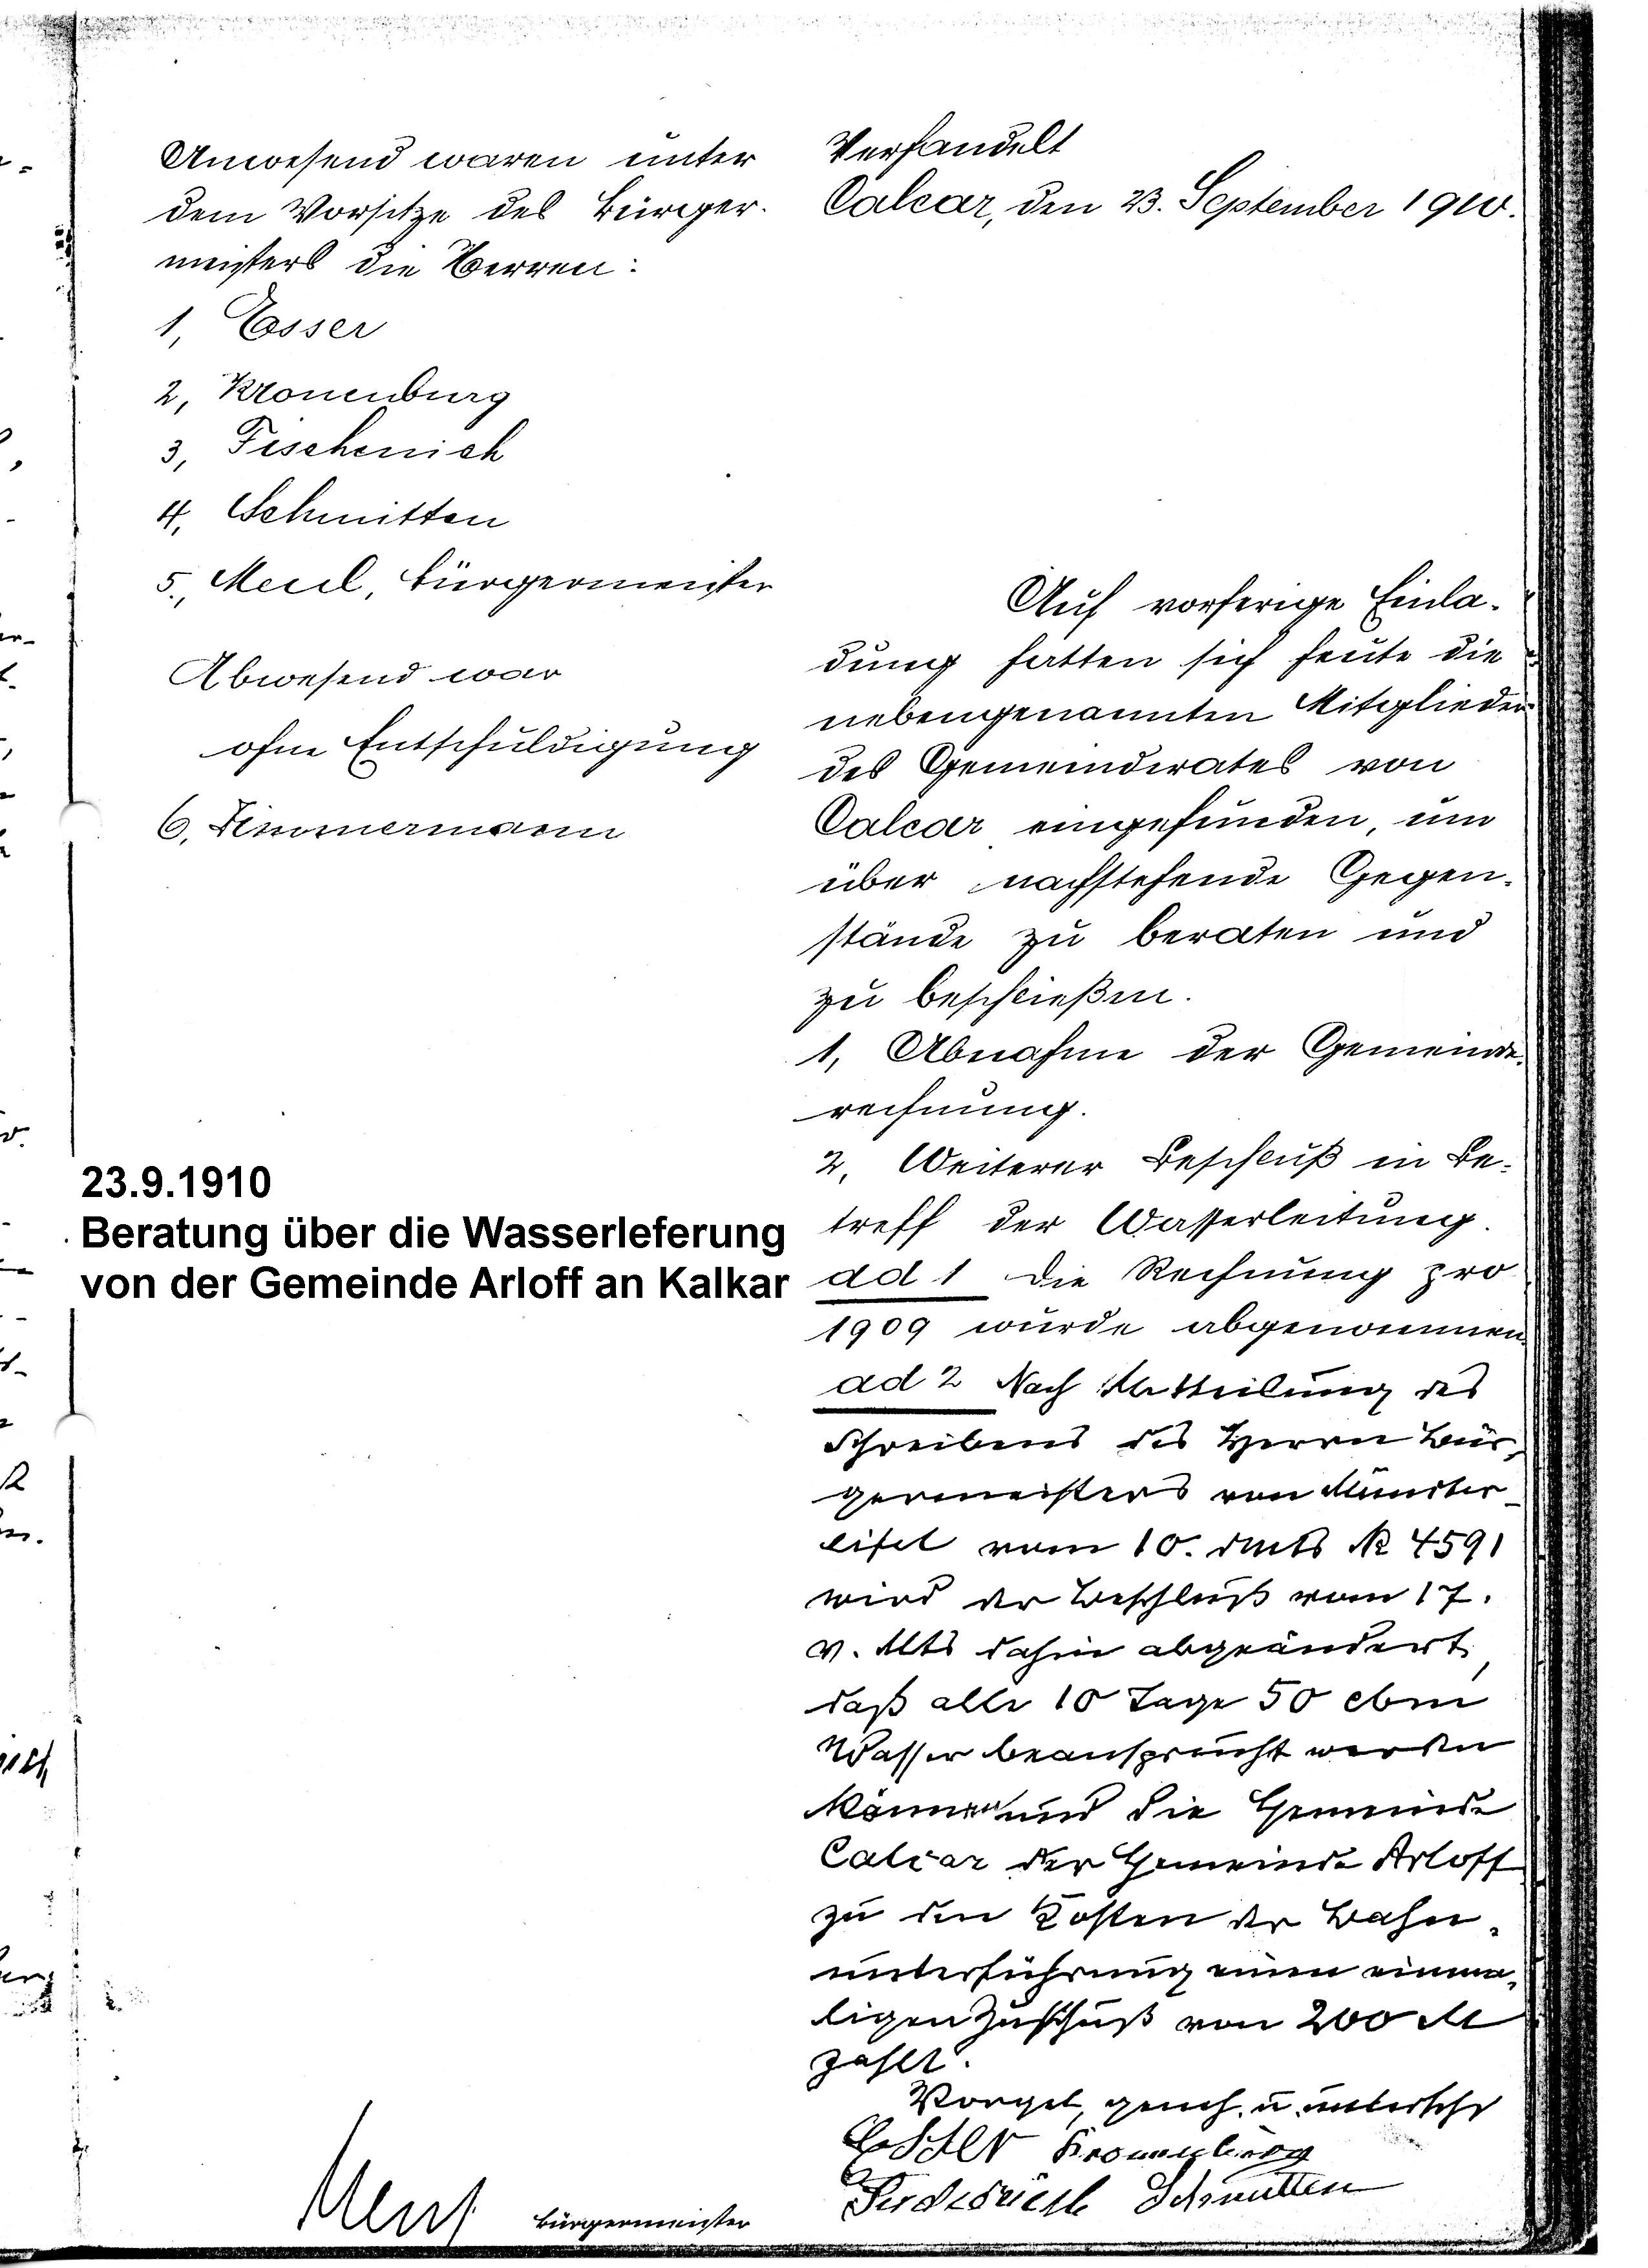 Anwesend waren unter
dem Vorsitze des Bürger-
meisters die Herren:
1, Esser
2, Kronenburg
3, Fischenich
4, Schmitten
5., Bürgermeister
Abwesend war
ohne Entschuldigung
6, Zimmermann
23.9.1910
Beratung über die Wasserleferung
von der Gemeinde Arloff an Kalkar
Verhandelt
Calcar, den 23. September 1910.
Auf vorherige Einla-
dung hatten sich heute die
nebengenannten Mitglieder
des Gemeinderates von
Calcar eingefunden, um
über nachstehende Gegen-
stände zu beraten und
zu beschließen.
1, Abnahme der Gemeinde-
rechnung.
2, Weiterer Beschluß in Be-
treff der Wasserleitung.
ad 1 Die Rechnung pro
1909 wurde abgenommen.
ad 2 Nach Mitteilung des
Schreibens des Herrn Bür-
germeisters von Münster-
eifel vom 10. dMts № 4591
wird der Beschluß vom 17.
v. Mts dahin abgeändert,
daß alle 10 Tage 50 cbm
Wasser beansprucht werden
können und die Gemeinde
Calcar der Gemeinde Arloff
zu den Kosten der Bahn-
unterführung einen einma-
ligen Zuschuß von 200 M
zahlt.
Vorgel, geneh. u. unterschr
Esser Kronenburg
Fischenich Schmitten
Bürgermeister